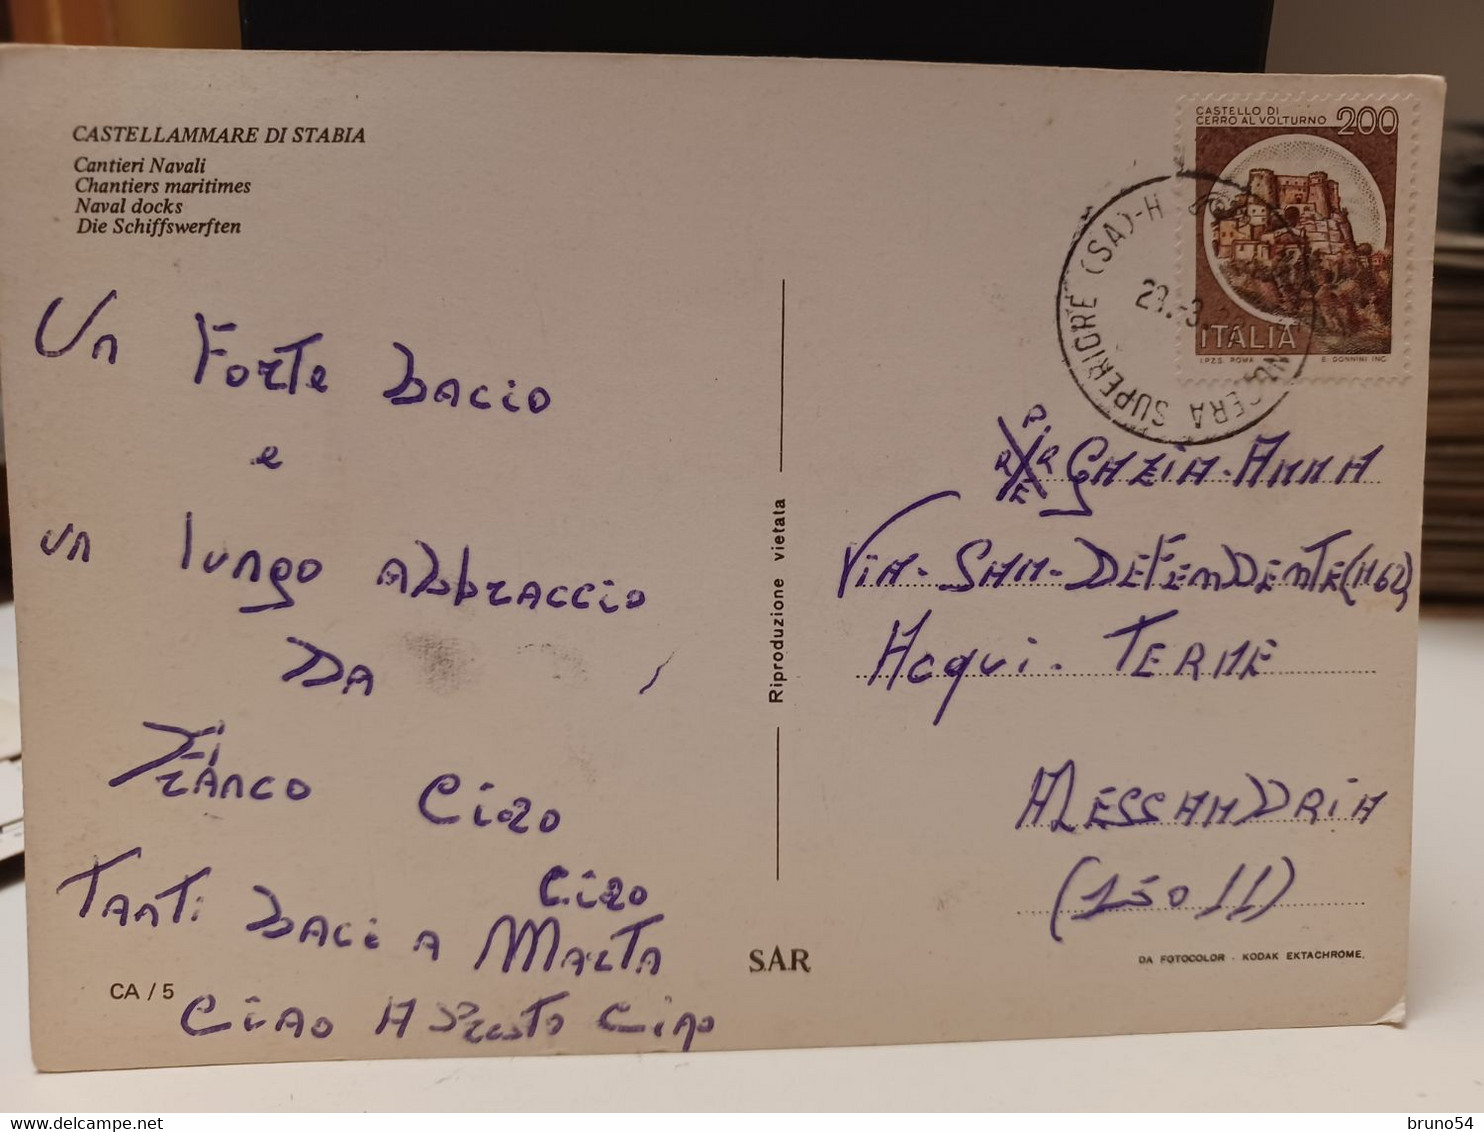 CASTELLAMMARE DI STABIA
Cantieri Navali
Chantiers maritimes
Naval docks
Die Schiffswerften
Un Forte bacio
e
un lungo abbraccio
DA
Franco Ciao
Ciao
Tanti baci a Marta
Ciao A Presto Ciao
CA / 5
SAR
Riproduzione vietata
CASTELLO DI
CERRO AL VOLTURNO 200
ITALIA
I.P.Z.S. ROMA E. DONNINI INC.
NOCERA SUPERIORE (SA)-H
29.-3.
PER GAZIA-ANNA
Via-SAN-DEFENDENTE (N62)
Acqui-TERME
ALESSANDRIA
(15011)
DA FOTOCOLOR - KODAK EKTACHROME.
bruno54